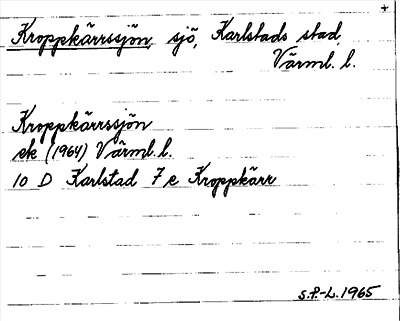 +
Kroppkärrssjön, sjö, Karlstads stad,
Värml. l.
Kroppkärrssjön
ek (1964) Värml. l.
10 D Karlstad 7 e Kroppkärr
S.P.-L. 1965